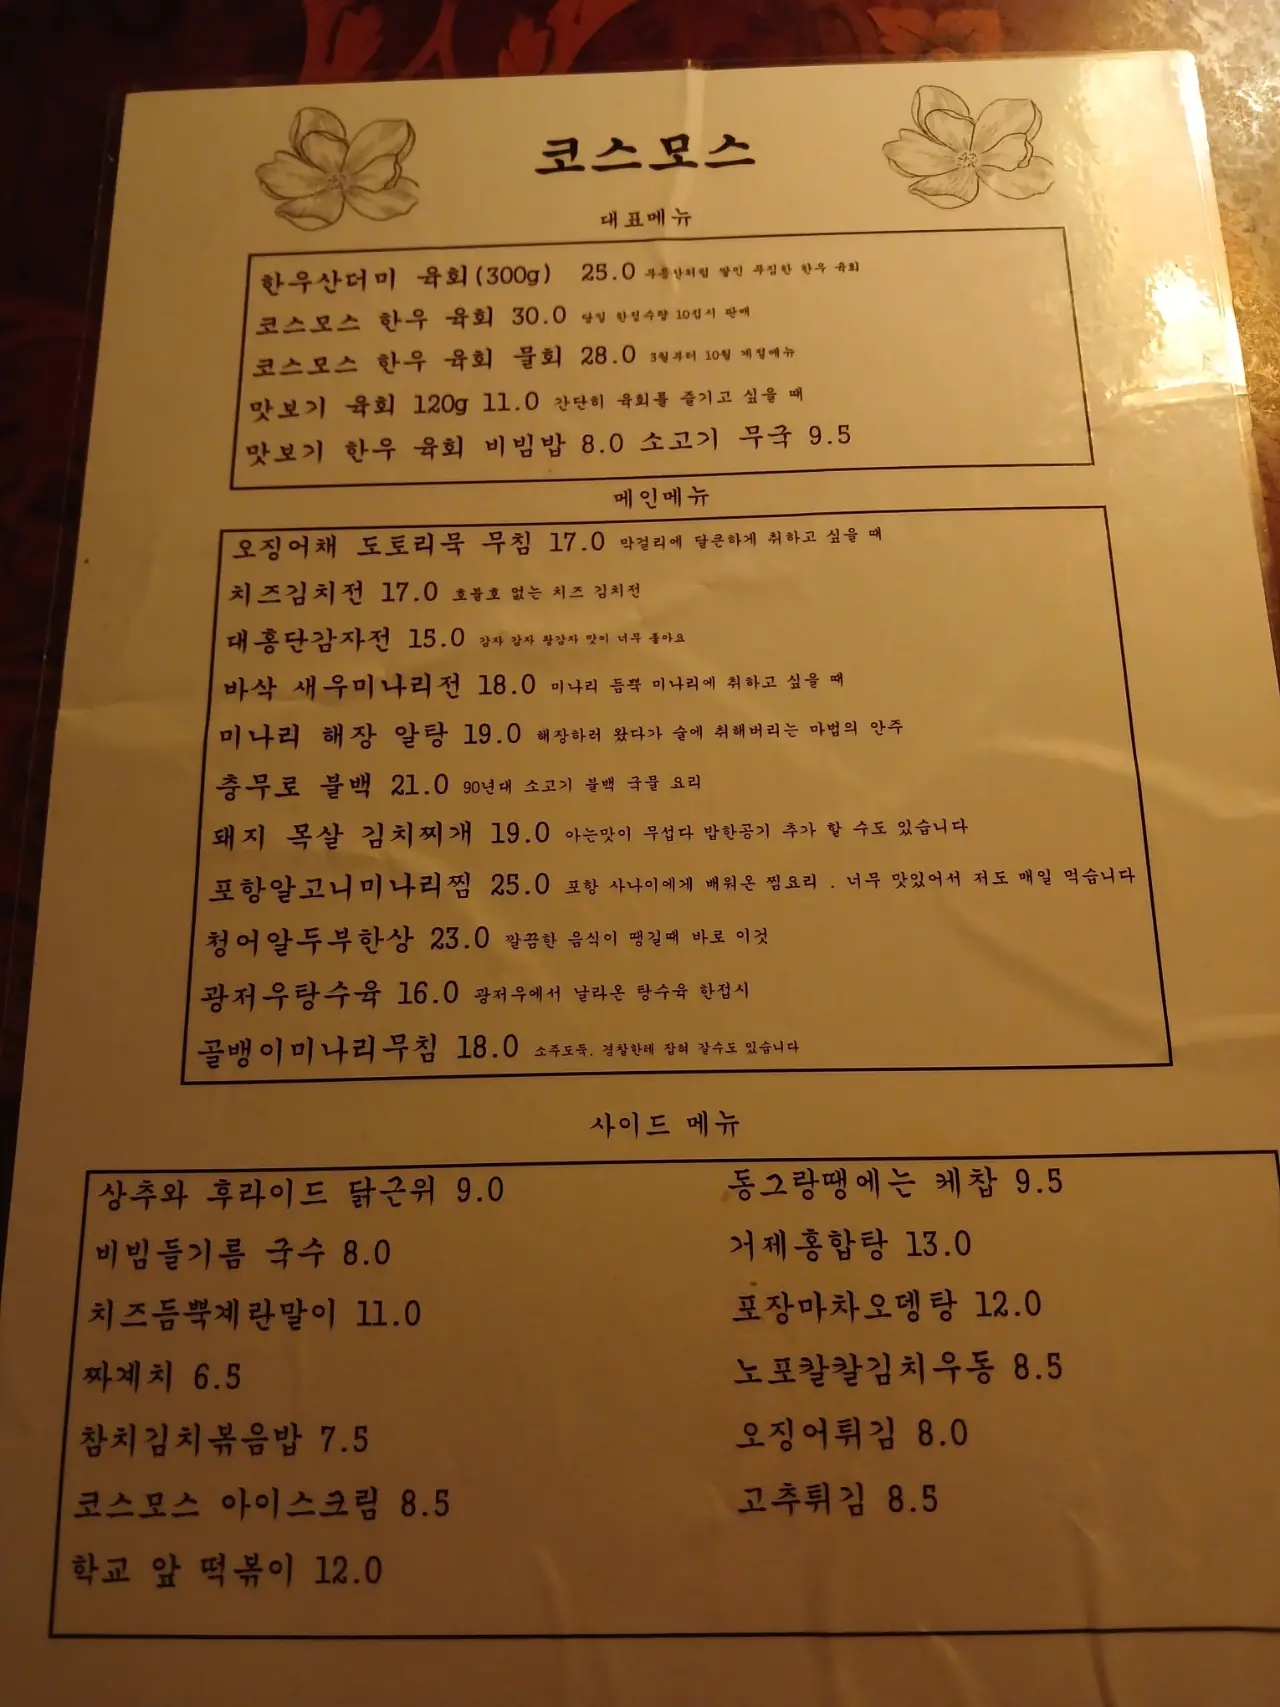 코스모스
대표메뉴
한우산더미 육회(300g) 25.0 푸짐한 한우 육회
코스모스 한우 육회 30.0 당일 한정수량 10접시 판매
코스모스 한우 육회 물회 28.0 3월부터 10월 계절메뉴
맛보기 육회 120g 11.0 간단히 육회를 즐기고 싶을 때
맛보기 한우 육회 비빔밥 8.0 소고기 무국 9.5
메인메뉴
오징어채 도토리묵 무침 17.0 막걸리에 달큰하게 취하고 싶을 때
치즈김치전 17.0 호불호 없는 치즈 김치전
대홍단감자전 15.0 감자 감자 왕감자 맛이 너무 좋아요
바삭 새우미나리전 18.0 미나리 듬뿍 미나리에 취하고 싶을 때
미나리 해장 알탕 19.0 해장하러 왔다가 술에 취해버리는 마법의 안주
충무로 불백 21.0 90년대 소고기 불백 국물 요리
돼지 목살 김치찌개 19.0 아는맛이 무섭다 밥한공기 추가 할 수도 있습니다
포항알고니미나리찜 25.0 포항 사나이에게 배워온 찜요리 . 너무 맛있어서 저도 매일 먹습니다
청어알두부한상 23.0 깔끔한 음식이 땡길때 바로 이것
광저우탕수육 16.0 광저우에서 날라온 탕수육 한접시
골뱅이미나리무침 18.0 소주도둑. 경찰한테 잡혀 갈수도 있습니다
사이드 메뉴
상추와 후라이드 닭근위 9.0
비빔들기름 국수 8.0
치즈듬뿍계란말이 11.0
짜계치 6.5
참치김치볶음밥 7.5
코스모스 아이스크림 8.5
학교 앞 떡볶이 12.0
동그랑땡에는 케찹 9.5
거제홍합탕 13.0
포장마차오뎅탕 12.0
노포칼칼김치우동 8.5
오징어튀김 8.0
고추튀김 8.5